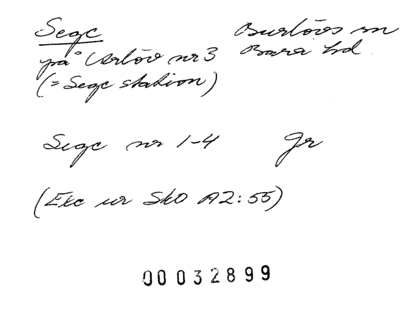 Sege Burlövs sn
på Arlöv nr 3 Bara hd
(= Sege station)
Sege nr 1-4 Jr
(Exc ur SkO A2:55)
00032899